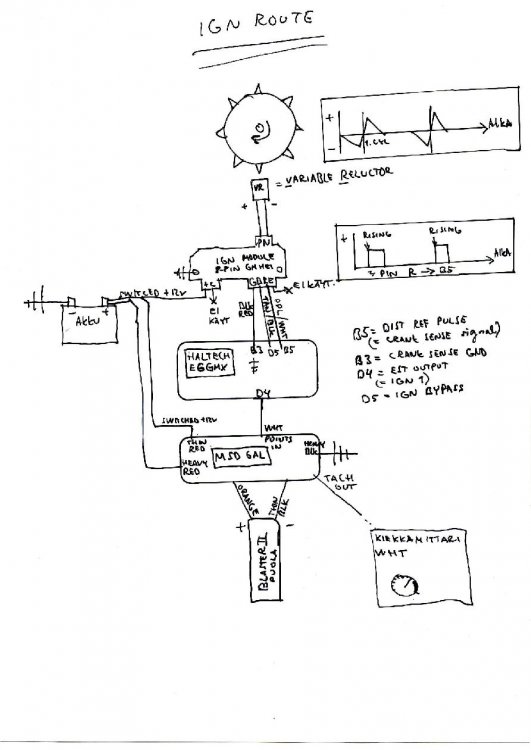 IGN ROUTE
+
-
1. CYL
AIKA
VR = VARIABLE RELUCTOR
+ -
PN
IGN MODULE
8-PIN GM HEI
+C
GBRE
EI KÄYT.
EI
KÄYT
SWITCHED +12V
- +
AKKU
BLK
RED
TAN/BLK
PPL/WHT
+
RISING
RISING
AIKA
PIN R → B5
HALTECH
E6GMX
B3 D5 B5
D4
B5 = DIST REF PULSE
(= CRANK SENSE signal)
B3 = CRANK SENSE GND
D4 = EST OUTPUT
(= IGN 1)
D5 = IGN BYPASS
SWITCHED +12V
WHT
THIN
RED
POINTS
IN
HEAVY
BLK
HEAVY
RED
MSD 6AL
TACH
OUT
ORANGE
THIN
BLK
+ -
BLASTER II
PUOLA
KIERROSMITTARI
WHT